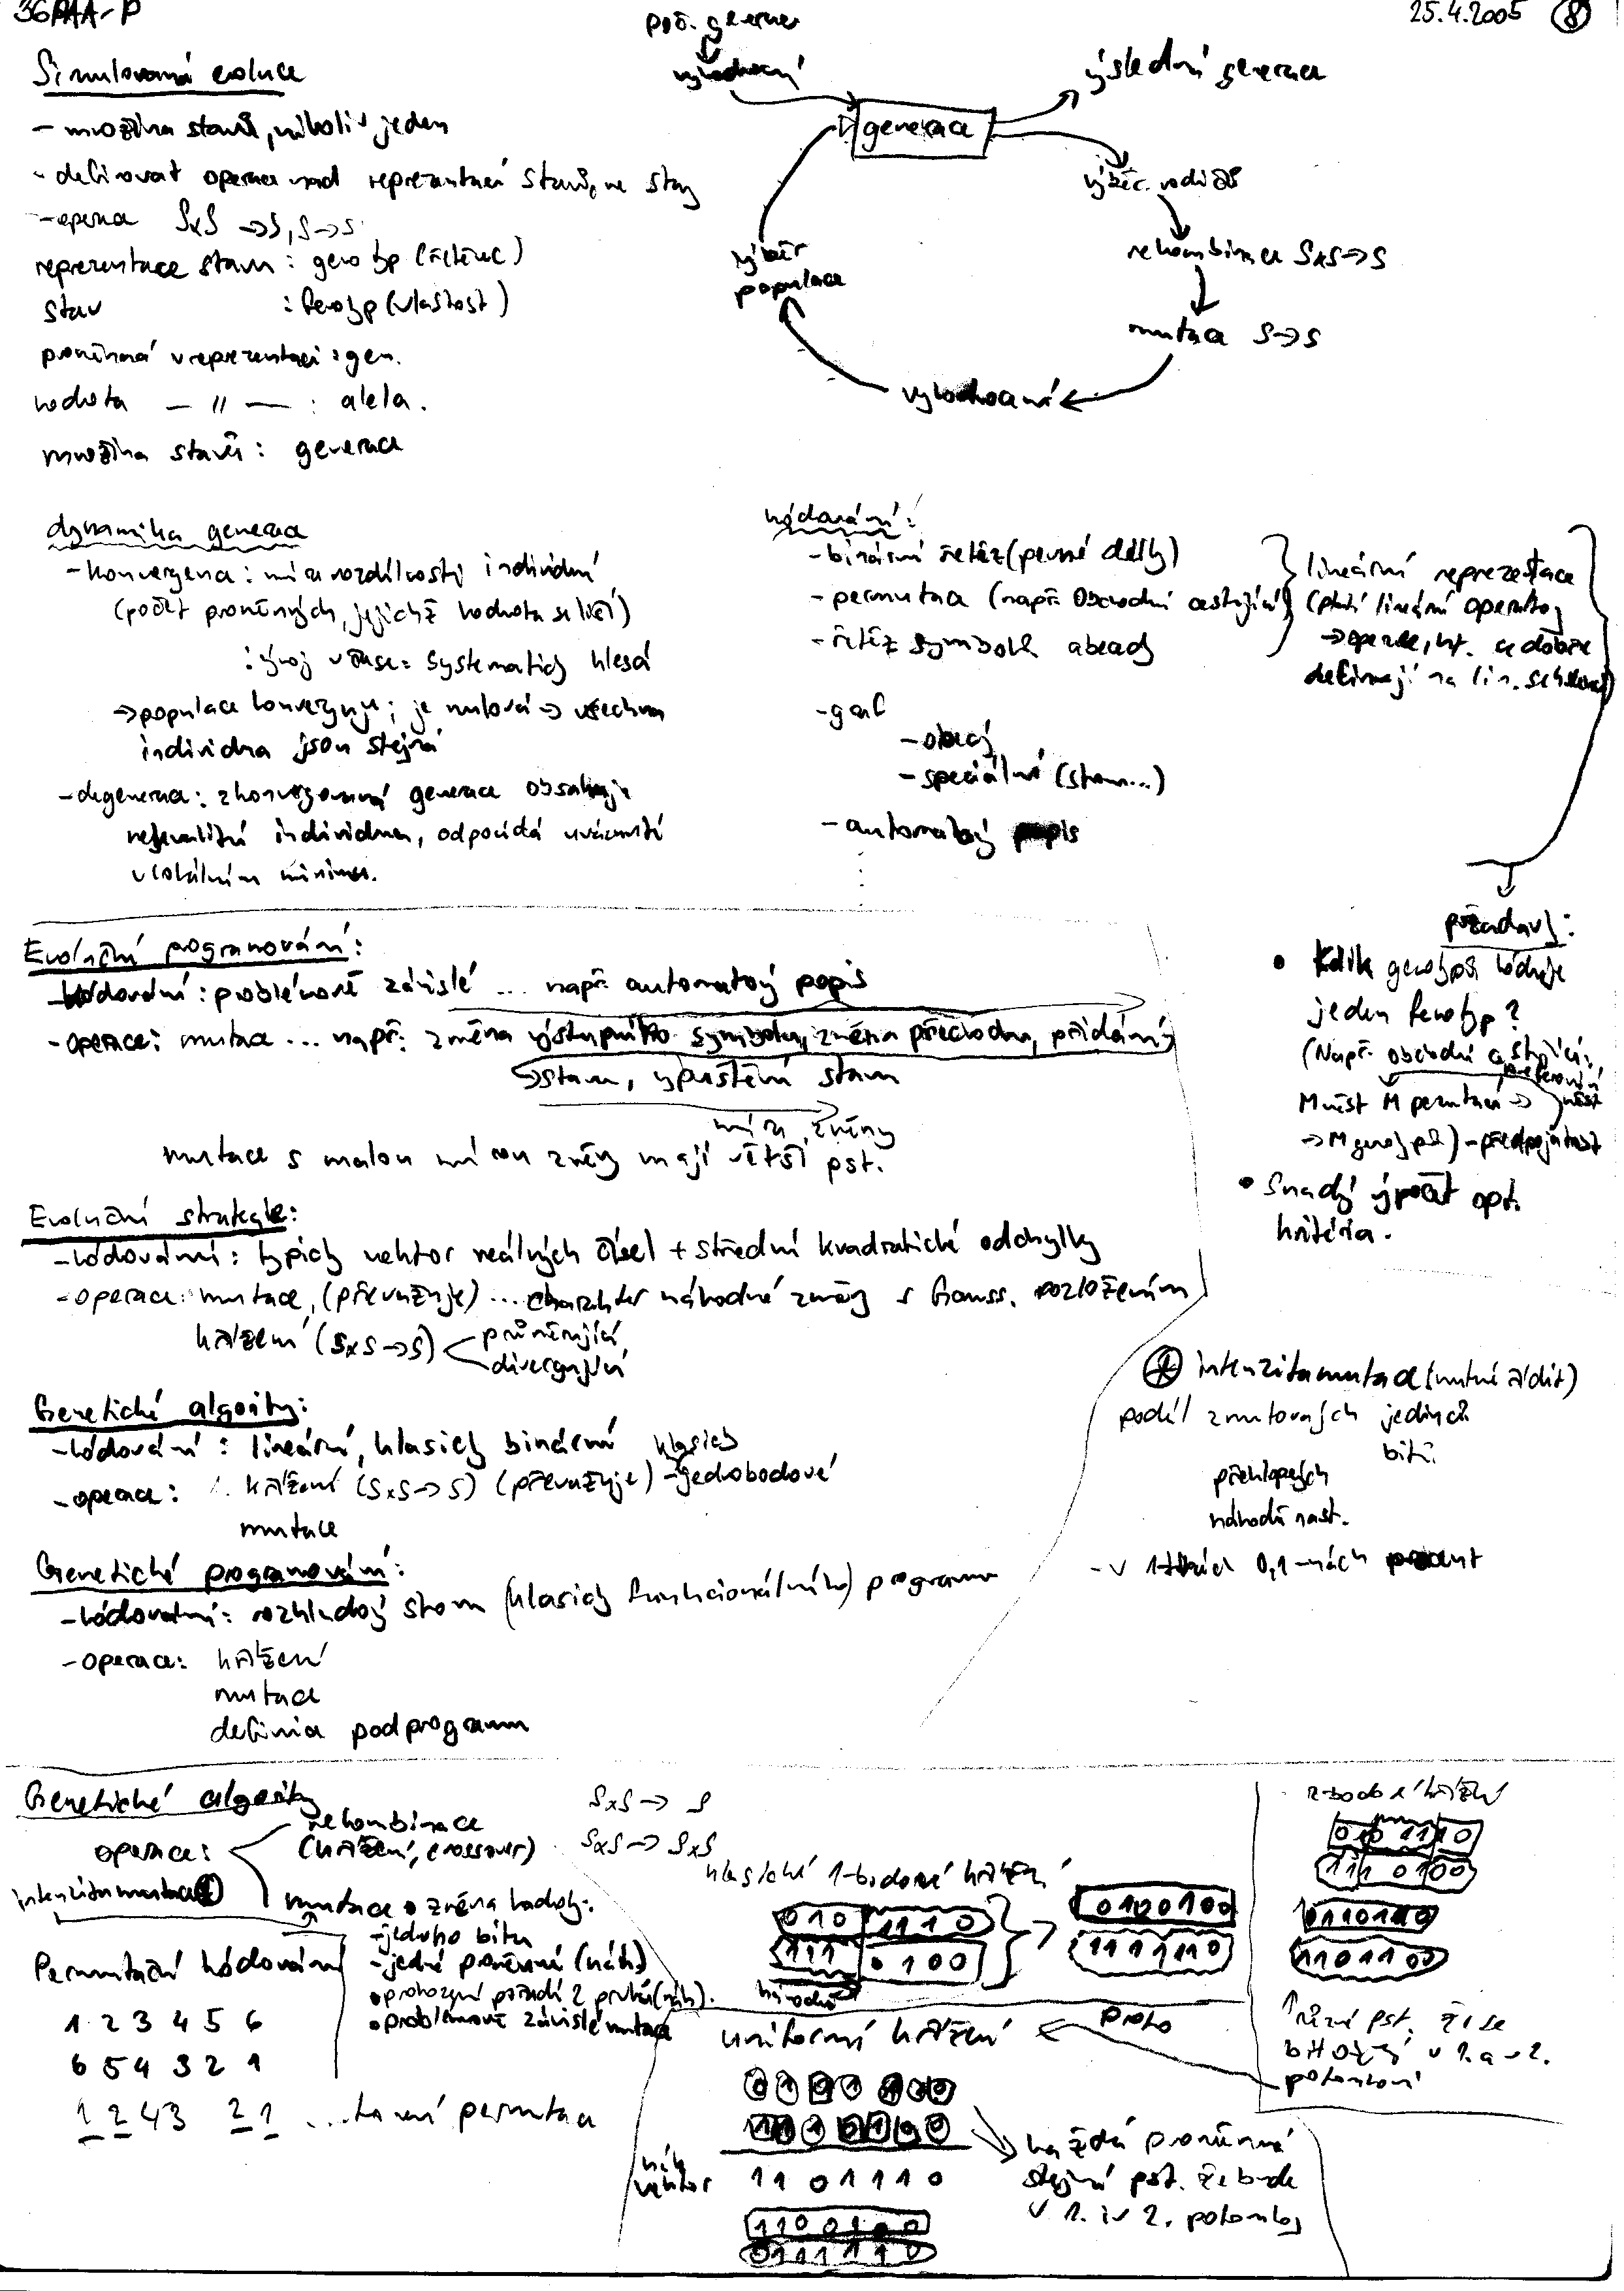 36PAA-P
25.4.2005 (8)
Simulovaná evoluce
- množina stavů, nikoliv jeden
- definovat operace nad reprezentací stavů, ne stavy
- operace SxS → S, S → S
reprezentace stavu : genotyp (řetězec)
stav : fenotyp (vlastnost)
proměnná v reprezentaci : gen.
hodnota — 〃 — : alela.
množina stavů : generace
poč. generace
vyhodnocený
generace
výslední generace
výběr rodičů
rekombinace SxS→S
mutace S→S
vyhodnocení
výběr
populace
dynamika generace
- konvergence : míra rozdílnosti individuí
(počet proměnných, jejichž hodnota se liší)
: vývoj v čase: systematicky klesá
→ populace konverguje; je nulová → všechna
individua jsou stejná
- degenerace : zkonvergovaná generace obsahuje
nekvalitní individua, odpovídá uváznutí
v lokálním minimu.
kódování:
- binární řetěz (pevné délky)
- permutace (např. obchodní cestující)
- řetěz symbolů abecedy
- graf
- obecný
- speciální (strom...)
- automatový popis
lineární reprezentace
(platí lineární operátory
→ operace, kt. se dobře
definují na lin.
požadavky:
• Kolik genotypů kóduje
jeden fenotyp?
(Např. obchodní cestující:
M měst M permutací →
→ M genotypů) - předpojatost
• Snadný výpočet opt.
kritéria.
Evoluční programování:
- kódování : problémově závislé ... např. automatový popis
- operace: mutace ... např: změna výstupního symbolu, změna přechodu, přidání
→ stavu, vypuštění stavu
míra změny
mutace s malou mírou změny mají větší pst.
Evoluční strategie:
- kódování : typicky vektor reálných čísel + střední kvadratické odchylky
- operace: mutace, (převažuje) ... charakter náhodné změny s Gauss. rozložením
křížení (SxS→S)
průměrující
divergující
Genetické algoritmy:
- kódování : lineární, klasicky binární
- operace: křížení (SxS→S) (převažuje) - klasicky jednobodové
mutace
Genetické programování:
- kódování: rozkladový strom (klasicky funkcionálního) programu
- operace: křížení
mutace
definice podprogramu
intenzita mutace (nutné řídit)
podíl zmutovaných jedinců
bitů
překlopených
náhodně nast.
- v 0,1-nách procent
Genetické algoritmy
operace:
rekombinace
(křížení, crossover)
SxS → S
SxS → SxS
intenzita mutace
mutace • změna hodnoty:
- jednoho bitu
- jedné proměnné (náh.)
• prohození pořadí 2 prvků (náh.)
• problémově závislé mutace
Permutační kódování
1 2 3 4 5 6
6 5 4 3 2 1
1 2 4 3 2 1 ... to není permutace
klasické 1-bodové křížení
010 1110
111 0100
náhodně
0100100
1111110
2-bodové křížení
010 11 10
111 0100
0110110
1101100
↑ různé pst. že se
bit objeví v 1. a v 2.
potomkovi
proto
uniformní křížení
náh.
vektor
1 1 0 1 1 1 0
každá proměnná
stejná pst. že bude
v 1. i v 2. potomkovi